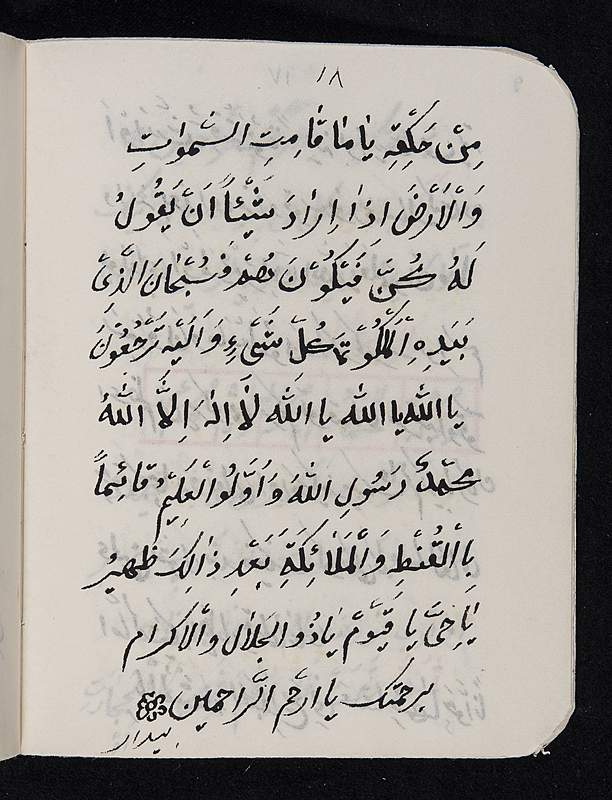 ١٨
مِنْ خَلْقِهِ يَا مَا قَامَتِ السَّمٰوَاتِ
وَالْاَرْضَ اِذَا اَرَادَ شَيْئاً اَنْ يَقُولُ
لَهُ كُنْ فَيَكُوْنَ فَسُبْحَانَ الَّذِىْ
بِيَدِهِ الْمَلَكُوْتَ كُلِّ شَىْءٍ وَاِلَيْهِ تُرْجَعُوْنَ
يا الله يا الله يا الله لَا اِلٰهَ اِلَّا اللهُ
مُحَمَّدُ رَسُولِ اللهَ وَ اُوَلُو الْعِلِيْمُ قَائِماً
بِالْقُسْطِ وَالْمَلَائِكَةِ بَعْدِ ذَالِكَ ظَهِيرُ
يَاحَىُّ يَا قَيُّومُ يَا ذُو الجَلَالِ وَالْاكرام
برحمتك يا ارحم الراحمين
بيدار